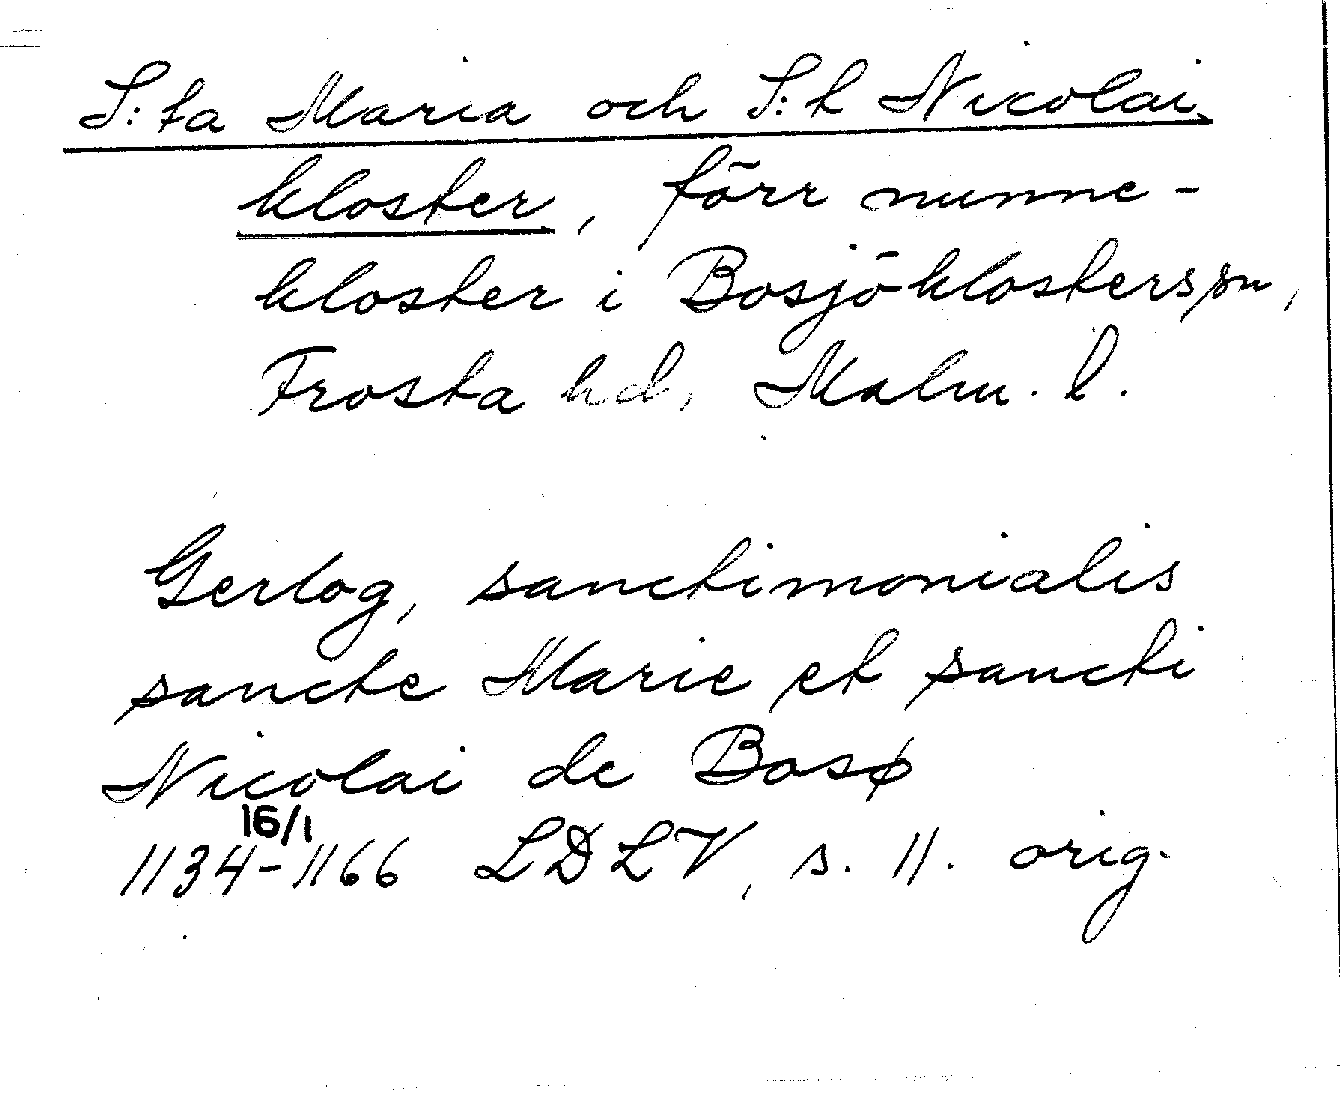 S:ta Maria och S:t Nicolai
kloster, förr nunne-
kloster i Bosjöklosters sn,
Frosta hd, Malm. l.
Gerlog, sanctimonialis
sancte Marie et sancti
Nicolai de Bosø
16/1
1134-1166 LDLV, s. 11. orig.